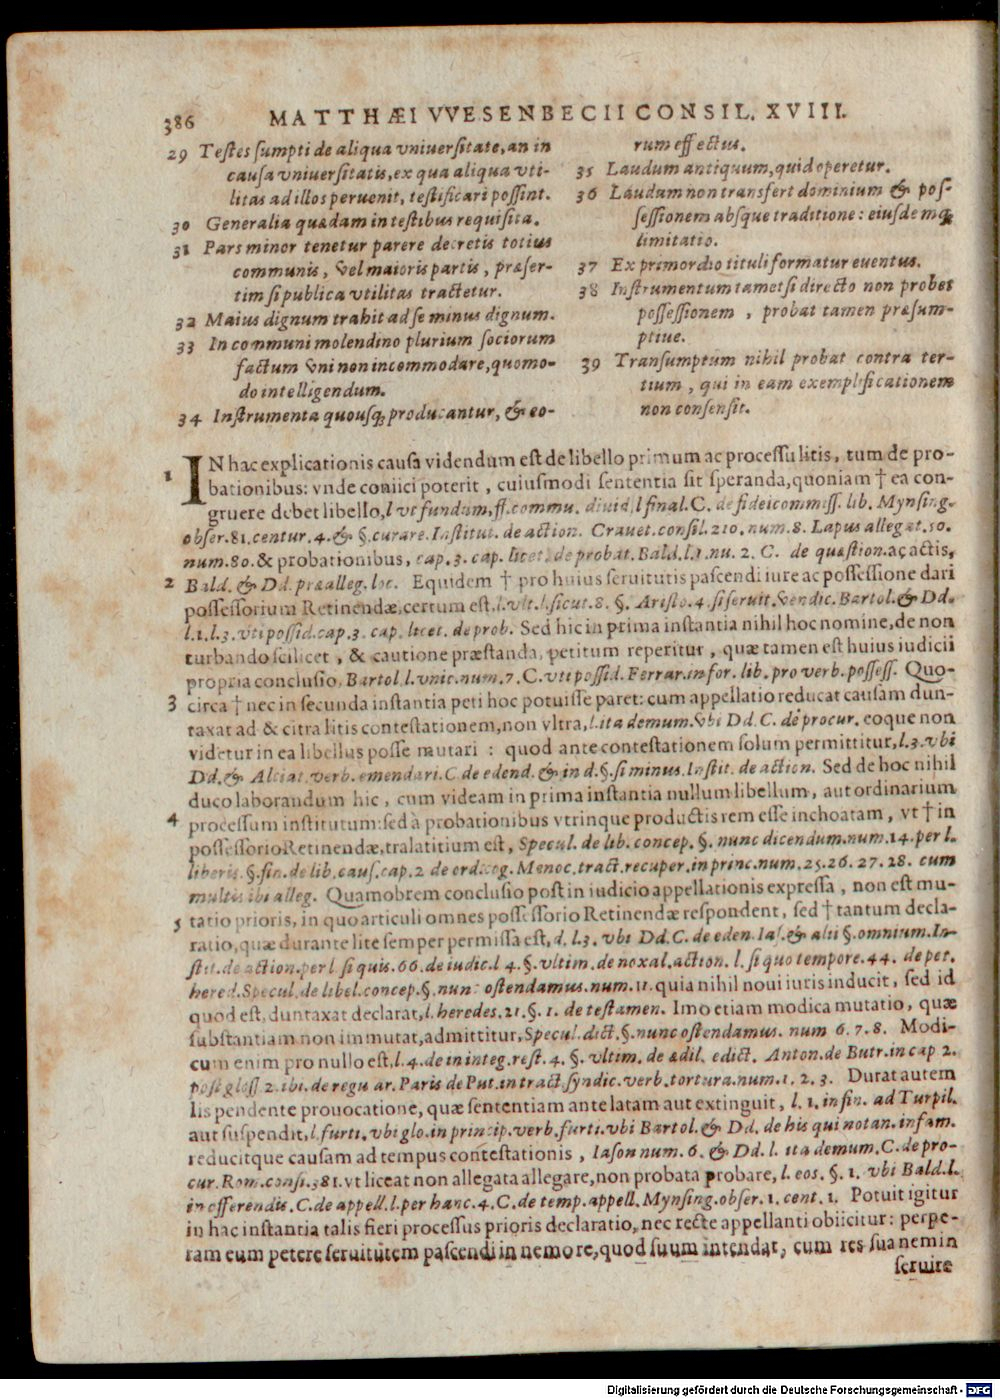 386 MATTHÆI VVESENBECII CONSIL. XVIII.
29 Testes sumpti de aliqua vniuersitate, an in
causa vniuersitatis, ex qua aliqua vti-
litas ad illos peruenit, testificari possint.
30 Generalia quædam in testibus requisita.
31 Pars minor tenetur parere decretis totius
communis, vel maioris partis, præser-
tim si publica vtilitas tractetur.
32 Maius dignum trahit ad se minus dignum.
33 In communi molendino plurium sociorum
factum vni non incommodare, quomo-
do intelligendum.
34 Instrumenta quousq; producantur, & eo-
rum effectus.
35 Laudum antiquum, quid operetur.
36 Laudum non transfert dominium & pos-
sessionem absque traditione: eiusdemq;
limitatio.
37 Ex primordio tituli formatur euentus.
38 Instrumentum tametsi directo non probet
possessionem, probat tamen præsum-
ptiue.
39 Transumptum nihil probat contra ter-
tium, qui in eam exemplificationem
non consensit.
1 IN hac explicationis causa videndum est de libello primum ac processu litis, tum de pro-
bationibus: vnde coniici poterit, cuiusmodi sententia sit speranda, quoniam † ea con-
gruere debet libello, l vt fundum, ff. commu. diuid. l final. C. de fideicommiss. lib. Mynsing.
obser. 81. centur. 4. & §. curare. Institut. de action. Crauet. consil. 210. num. 8. Lapus allegat. 50.
num. 80. & probationibus, cap. 3. cap. licet. de probat. Bald. l. 1. nu. 2. C. de quæstion. aç actis,
2 Bald. & Dd. præalleg. loc. Equidem † pro huius seruitutis pascendi iure ac possessione dari
possessorium Retinendæ, certum est, l. vlt. l. sicut. 8. §. Aristo. 4. si seruit. vendic. Bartol. & Dd.
l. 1. l. 3. vti possid. cap. 3. cap. licet. de prob. Sed hic in prima instantia nihil hoc nomine, de non
turbando scilicet, & cautione præstanda, petitum reperitur, quæ tamen est huius iudicii
propria conclusio, Bartol l. vnic. num. 7. C. vti possid. Ferrar. in for. lib. pro verb. possess. Quo-
3 circa † nec in secunda instantia peti hoc potuisse paret: cum appellatio reducat causam dun-
taxat ad & citra litis contestationem, non vltra, l. ita demum. vbi Dd. C. de procur. eoque non
videtur in ea libellus posse mutari : quod ante contestationem solum permittitur, l. 3. vbi
Dd. & Alciat. verb. emendari. C. de edend. & in d. §. si minus. Instit. de action. Sed de hoc nihil
duco laborandum hic, cum videam in prima instantia nullum libellum, aut ordinarium
4 processum institutum: sed à probationibus vtrinque productis rem esse inchoatam, vt † in
possessorio Retinendæ, tralatitium est, Specul. de lib. concep. §. nunc dicendum. num. 14. per l.
liberis. §. fin. de lib. caus. cap. 2 de ord. cog. Menoc. tract. recuper. in princ. num. 25. 26. 27. 28. cum
multis ibi alleg. Quamobrem conclusio post in iudicio appellationis expressa, non est mu-
5 tatio prioris, in quo articuli omnes possessorio Retinendæ respondent, sed † tantum decla-
ratio, quæ durante lite semper permissa est, d. l. 3. vbi Dd. C. de eden. Ias. & alii §. omnium. In-
stit. de action. per l si quis. 66. de iudic. l 4. §. vltim. de noxal. action. l. si quo tempore. 44. de pet.
hered. Specul. de libel. concep. §. nunc ostendamus. num. 11. quia nihil noui iuris inducit, sed id
quod est, duntaxat declarat, l. heredes. 21. §. 1. de testamen. Imo etiam modica mutatio, quæ
substantiam non immutat, admittitur, Specul. dict. §. nunc ostendamus. num 6. 7. 8. Modi-
cum enim pro nullo est, l. 4. de in integ. rest. 4. §. vltim. de ædil. edict. Anton. de Butr. in cap 2.
post gloss. 2. ibi. de regu ar. Paris de Put. in tract. syndic. verb. tortura. num. 1. 2. 3. Durat autem
lis pendente prouocatione, quæ sententiam ante latam aut extinguit, l. 1. in fin. ad Turpil.
aut suspendit, l. furti. vbi glo. in princip. verb. furti. vbi Bartol. & Dd. de his qui notan. infam.
reducitque causam ad tempus contestationis, Iason num. 6. & Dd. l. ita demum. C. de pro-
cur. Rom. consi. 381. vt liceat non allegata allegare, non probata probare, l. eos. §. 1. vbi Bald. l.
in offerendis. C. de appell. l. per hanc. 4. C. de temp. appell. Mynsing. obser. 1. cent. 1. Potuit igitur
in hac instantia talis fieri processus prioris declaratio, nec recte appellanti obiicitur: perpe-
ram eum petere seruitutem pascendi in nemore, quod suum intendat, cum res sua nemin
seruire
Digitalisierung gefördert durch die Deutsche Forschungsgemeinschaft - DFG